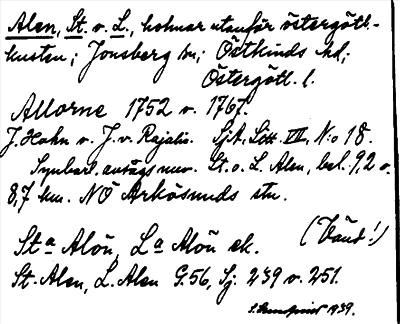 Alen, St. o. L., holmar utanför östergötl.-
kusten; Jonsberg sn; Östkinds hd;
Östergötl. l.
Allorne 1752 o. 1767.
J. Hahn o. J. v. Rajalin. SjK. Litt. VII, N:o 18.
Synbarl. avsågs nuv. St. o. L. Alen, bel. 9,2 o.
8,7 km. NÖ Arkösunds stn.
(Vänd!)
St<sup>a</sup> Alön, L<sup>a</sup> Alön ek.
St. Alen, L. Alen G. 56, Sj. 239 o. 251.
1939.